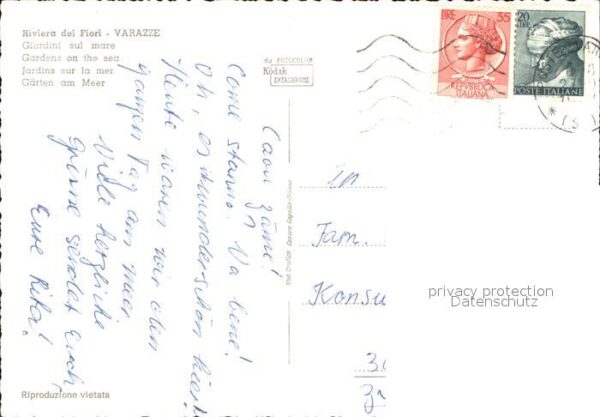 Riviera dei Fiori - VARAZZE
Giardini sul mare
Gardens on the sea
Jardins sur la mer
Gärten am Meer
da FOTOCOLOR
Kodak
EKTACHROME
LIRE 35
REPVBBLICA
ITALIANA
20
LIRE
POSTE ITALIANE
Caou zäme!
Come stanno? Va bene!
Oh, es wunderschön hier!
Heute waren wir den
ganzen Tag am Meer
Viele herzliche
Grüsse sendet Euch,
Eure Rita!
An
Fam.
Konsu
privacy protection
Datenschutz
Riproduzione vietata